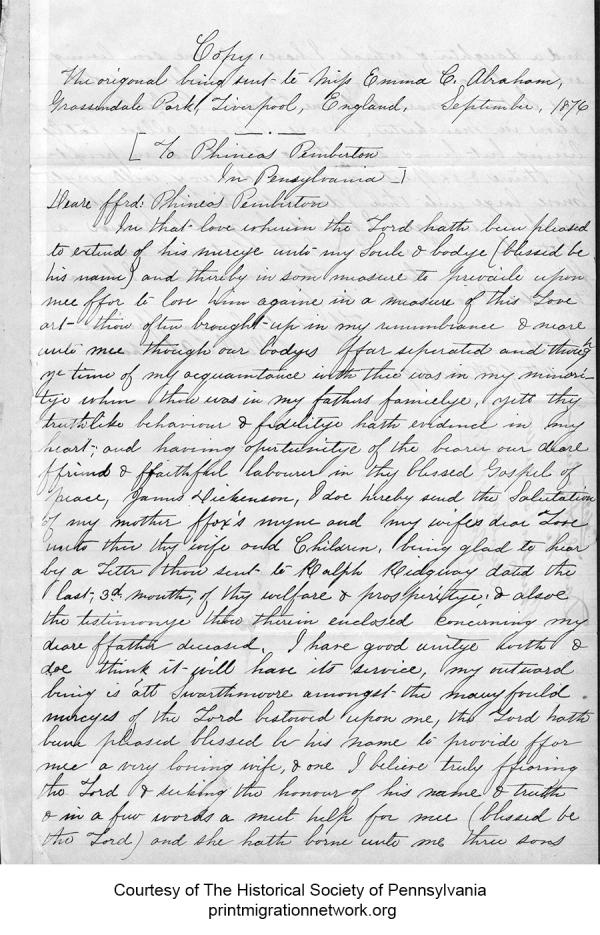 Copy.
The origonal being sent to Miss Emma C. Abraham,
Grassendale Park, Liverpool, England. September, 1876
[To Phineas Pemberton
In Pensylvania]
Deare ffrd: Phineas Pemberton
In that love wherein the Lord hath been pleased
to extend of his mercye unto my Soule & bodye (blessed be
his name) and thereby in som measure to prevaile upon
mee ffor to love him againe in a measure of this Love
art thou often brought up in my remembrance & neare
unto mee though our bodyes ffar seperated and though
ye time of my acquaintance with thee was in my minori-
tye when thou was in my fathers familye, yett thy
truthlike behaviour & fidelitye hath evidence in my
heart, and having opertunitye of the bearer our deare
ffriend & ffaithful labourer in thy blessed Gospel of
peace, James Dickenson, I doe hereby send the Salutation
of my mother ffox's myne and my wifes dear Love
unto thee thy wife and Children, being glad to hear
by a Letter thou sent to Ralph Ridgway dated the
last, 3d. month, of thy welfare & prosperitye; & alsoe
the testimonye thou therein enclosed concerning my
deare ffather deceased. I have good unitye with &
doe think it will have its service, my outward
being is att Swarthmoore amongst the many fould
mercyes of the Lord bestowed upon me, the Lord hath
been pleased blessed be his name to provide ffor
mee a very loving wife, & one I believe truly ffearing
the Lord & seeking the honour of his name & truth
& in a few words a meet help for mee (blessed be
the Lord) and she hath borne unto me three sons
Courtesy of The Historical Society of Pennsylvania
printmigrationnetwork.org